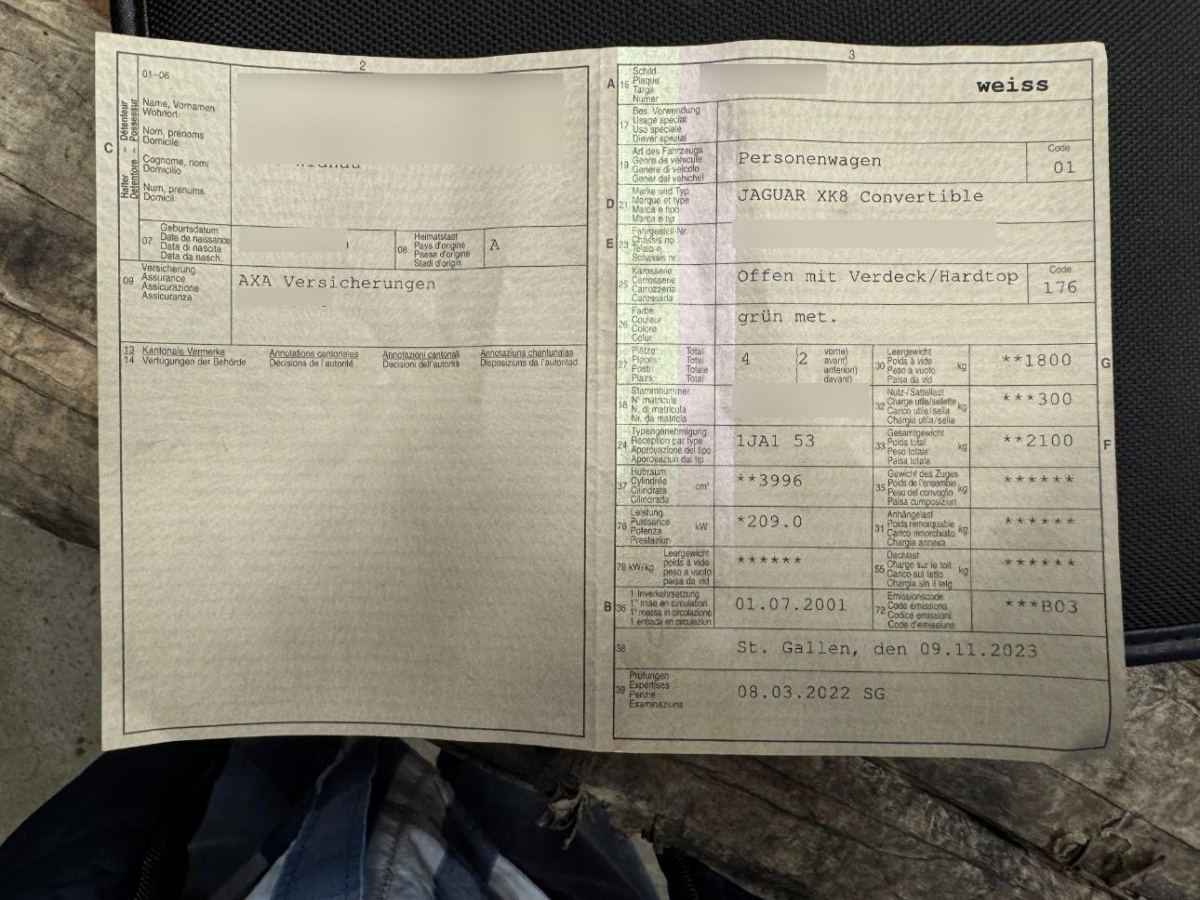 2
01-06
Name, Vornamen
Wohnort
Nom, prénoms
Domicile
Cognome, nomi
Domicilio
Num, prenums
Domicil
C
Halter – Détenteur
Detentore – Possessur
07
Geburtsdatum
Date de naissance
Data di nascita
Data da nasch.
08
Heimatstaat
Pays d'origine
Paese d'origine
Stadi d'origin
A
09
Versicherung
Assurance
Assicurazione
Assicuranza
AXA Versicherungen
13 Kantonale Vermerke
14 Verfügungen der Behörde
Annotations cantonales
Décisions de l'autorité
Annotazioni cantonali
Decisioni dell'autorità
Annotaziuns chantunalas
Disposiziuns da l'autoritad
3
A 15
Schild
Plaque
Targa
Numer
weiss
17
Bes. Verwendung
Usage spécial
Uso speciale
Diever spezial
19
Art des Fahrzeugs
Genre de véhicule
Genere di veicolo
Gener dal vehichel
Personenwagen
Code
01
D 21
Marke und Typ
Marque et type
Marca e tipo
Marca e tip
JAGUAR XK8 Convertible
E 23
Fahrgestell-Nr.
Châssis no
Telaio n.
Schassis nr.
25
Karosserie
Carrosserie
Carrozzeria
Carossaria
Offen mit Verdeck/Hardtop
Code
176
26
Farbe
Couleur
Colore
Colur
grün met.
27
Plätze Total
Places: Total
Posti: Totale
Plazs: Total
4
(2
vorne)
avant)
anteriori)
davant)
30
Leergewicht
Poids à vide
Peso a vuoto
Paisa da vid
kg
**1800
G
18
Stammnummer
N° matricule
N. di matricola
Nr. da matricla
32
Nutz-/Sattellast
Charge utile/sellette
Carico utile/sella
Chargia utila/sella
kg
***300
24
Typengenehmigung
Réception par type
Approvazione del tipo
Approvaziun dal tip
1JA1 53
33
Gesamtgewicht
Poids total
Peso totale
Paisa totala
kg
**2100
F
37
Hubraum
Cylindrée
Cilindrata
Cilindrada
cm³
**3996
35
Gewicht des Zuges
Poids de l'ensemble
Peso del convoglio
Paisa cumposiziun
kg
******
76
Leistung
Puissance
Potenza
Prestaziun
kW
*209.0
31
Anhängelast
Poids remorquable
Carico rimorchiato
Chargia annexa
kg
******
78 kW/kg
Leergewicht
poids à vide
peso a vuoto
paisa da vid
******
55
Dachlast
Charge sur le toit
Carico sul tetto
Chargia sin il tetg
kg
******
B 36
1. Inverkehrsetzung
1re mise en circulation
1a messa in circolazione
1. entrada en circulaziun
01.07.2001
72
Emissionscode
Code émissions
Codice emissioni
Code d'emissiuns
***B03
38
St. Gallen, den 09.11.2023
39
Prüfungen
Expertises
Perizie
Examinaziuns
08.03.2022 SG